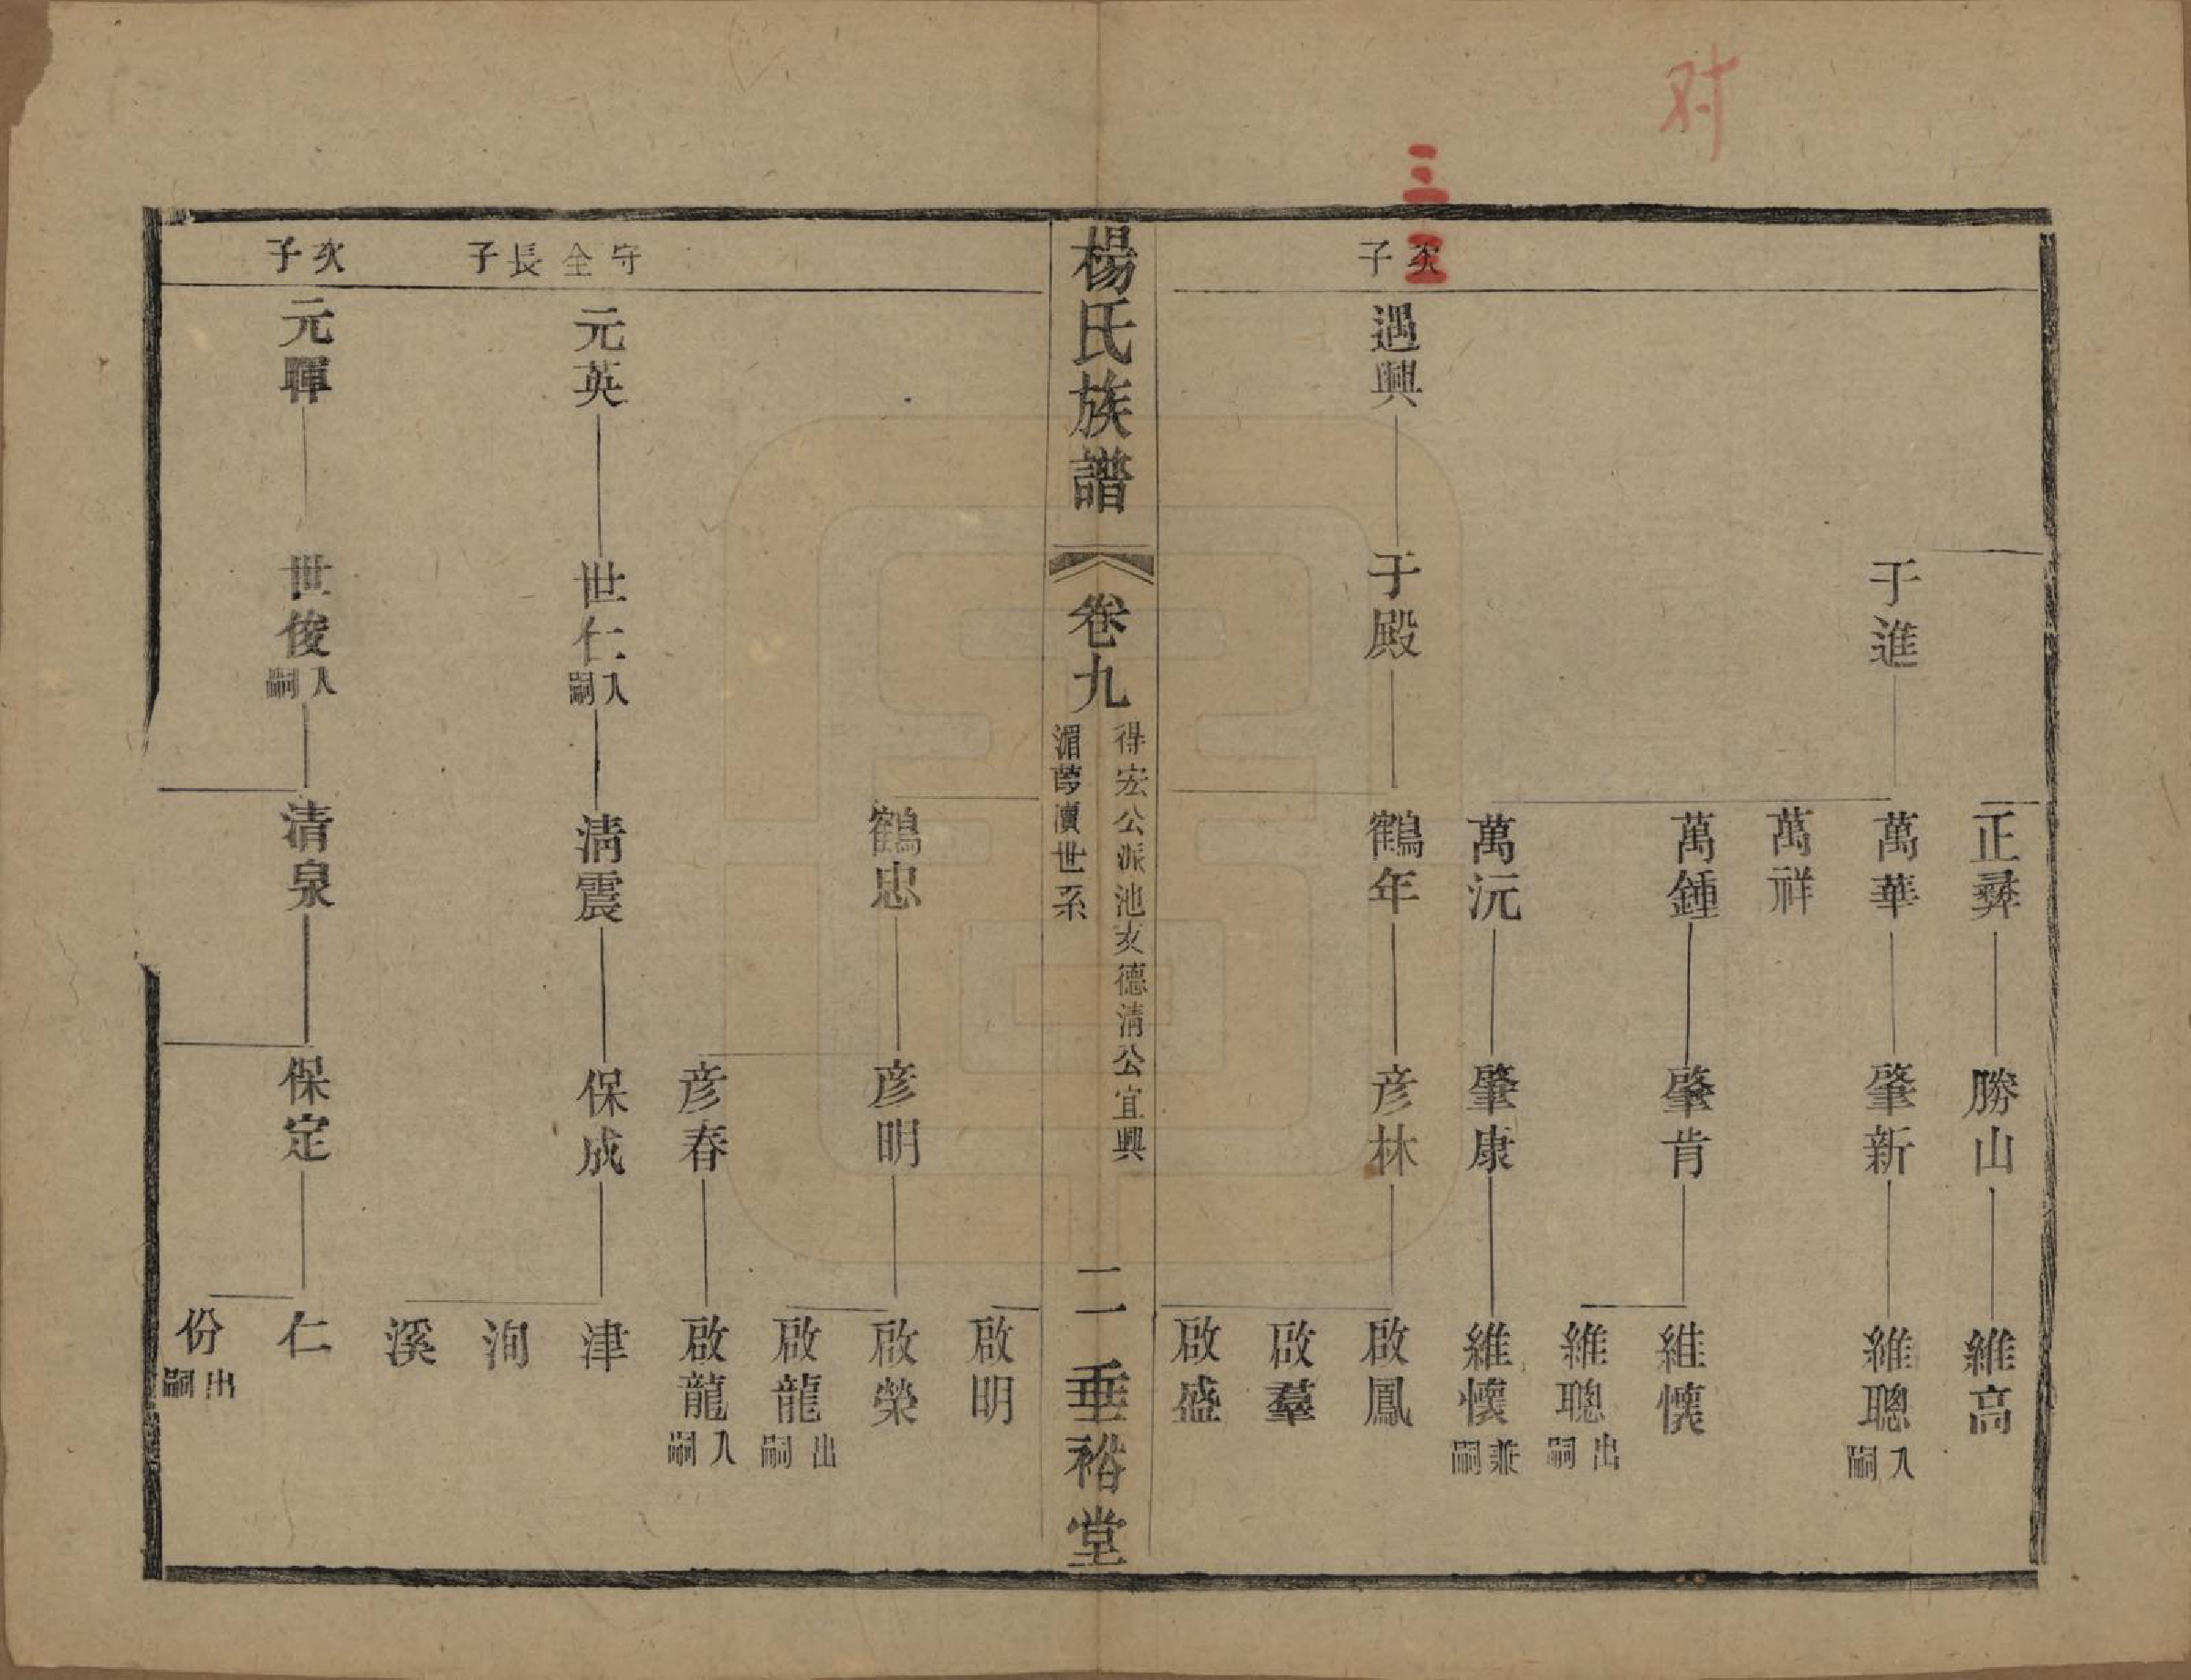 对
三三
次子
遇興
于殿
于進
正彞
萬華
萬祥
萬鍾
萬沅
鶴年
勝山
肇新
肇肯
肇康
彦林
維高
維聰入嗣
維懷
維聰出嗣
維懷兼嗣
啟鳳
啟羣
啟盛
楊氏族譜
卷九
得宏公派池亥德清公宜興
湄蕚瀆世系
二
垂裕堂
守全長子
次子
元英
元暉
世仁入嗣
世俊入嗣
鶴忠
清震
清泉
彦明
彦春
保成
保定
啟明
啟榮
啟龍出嗣
啟龍入嗣
津
洵
溪
仁
份出嗣